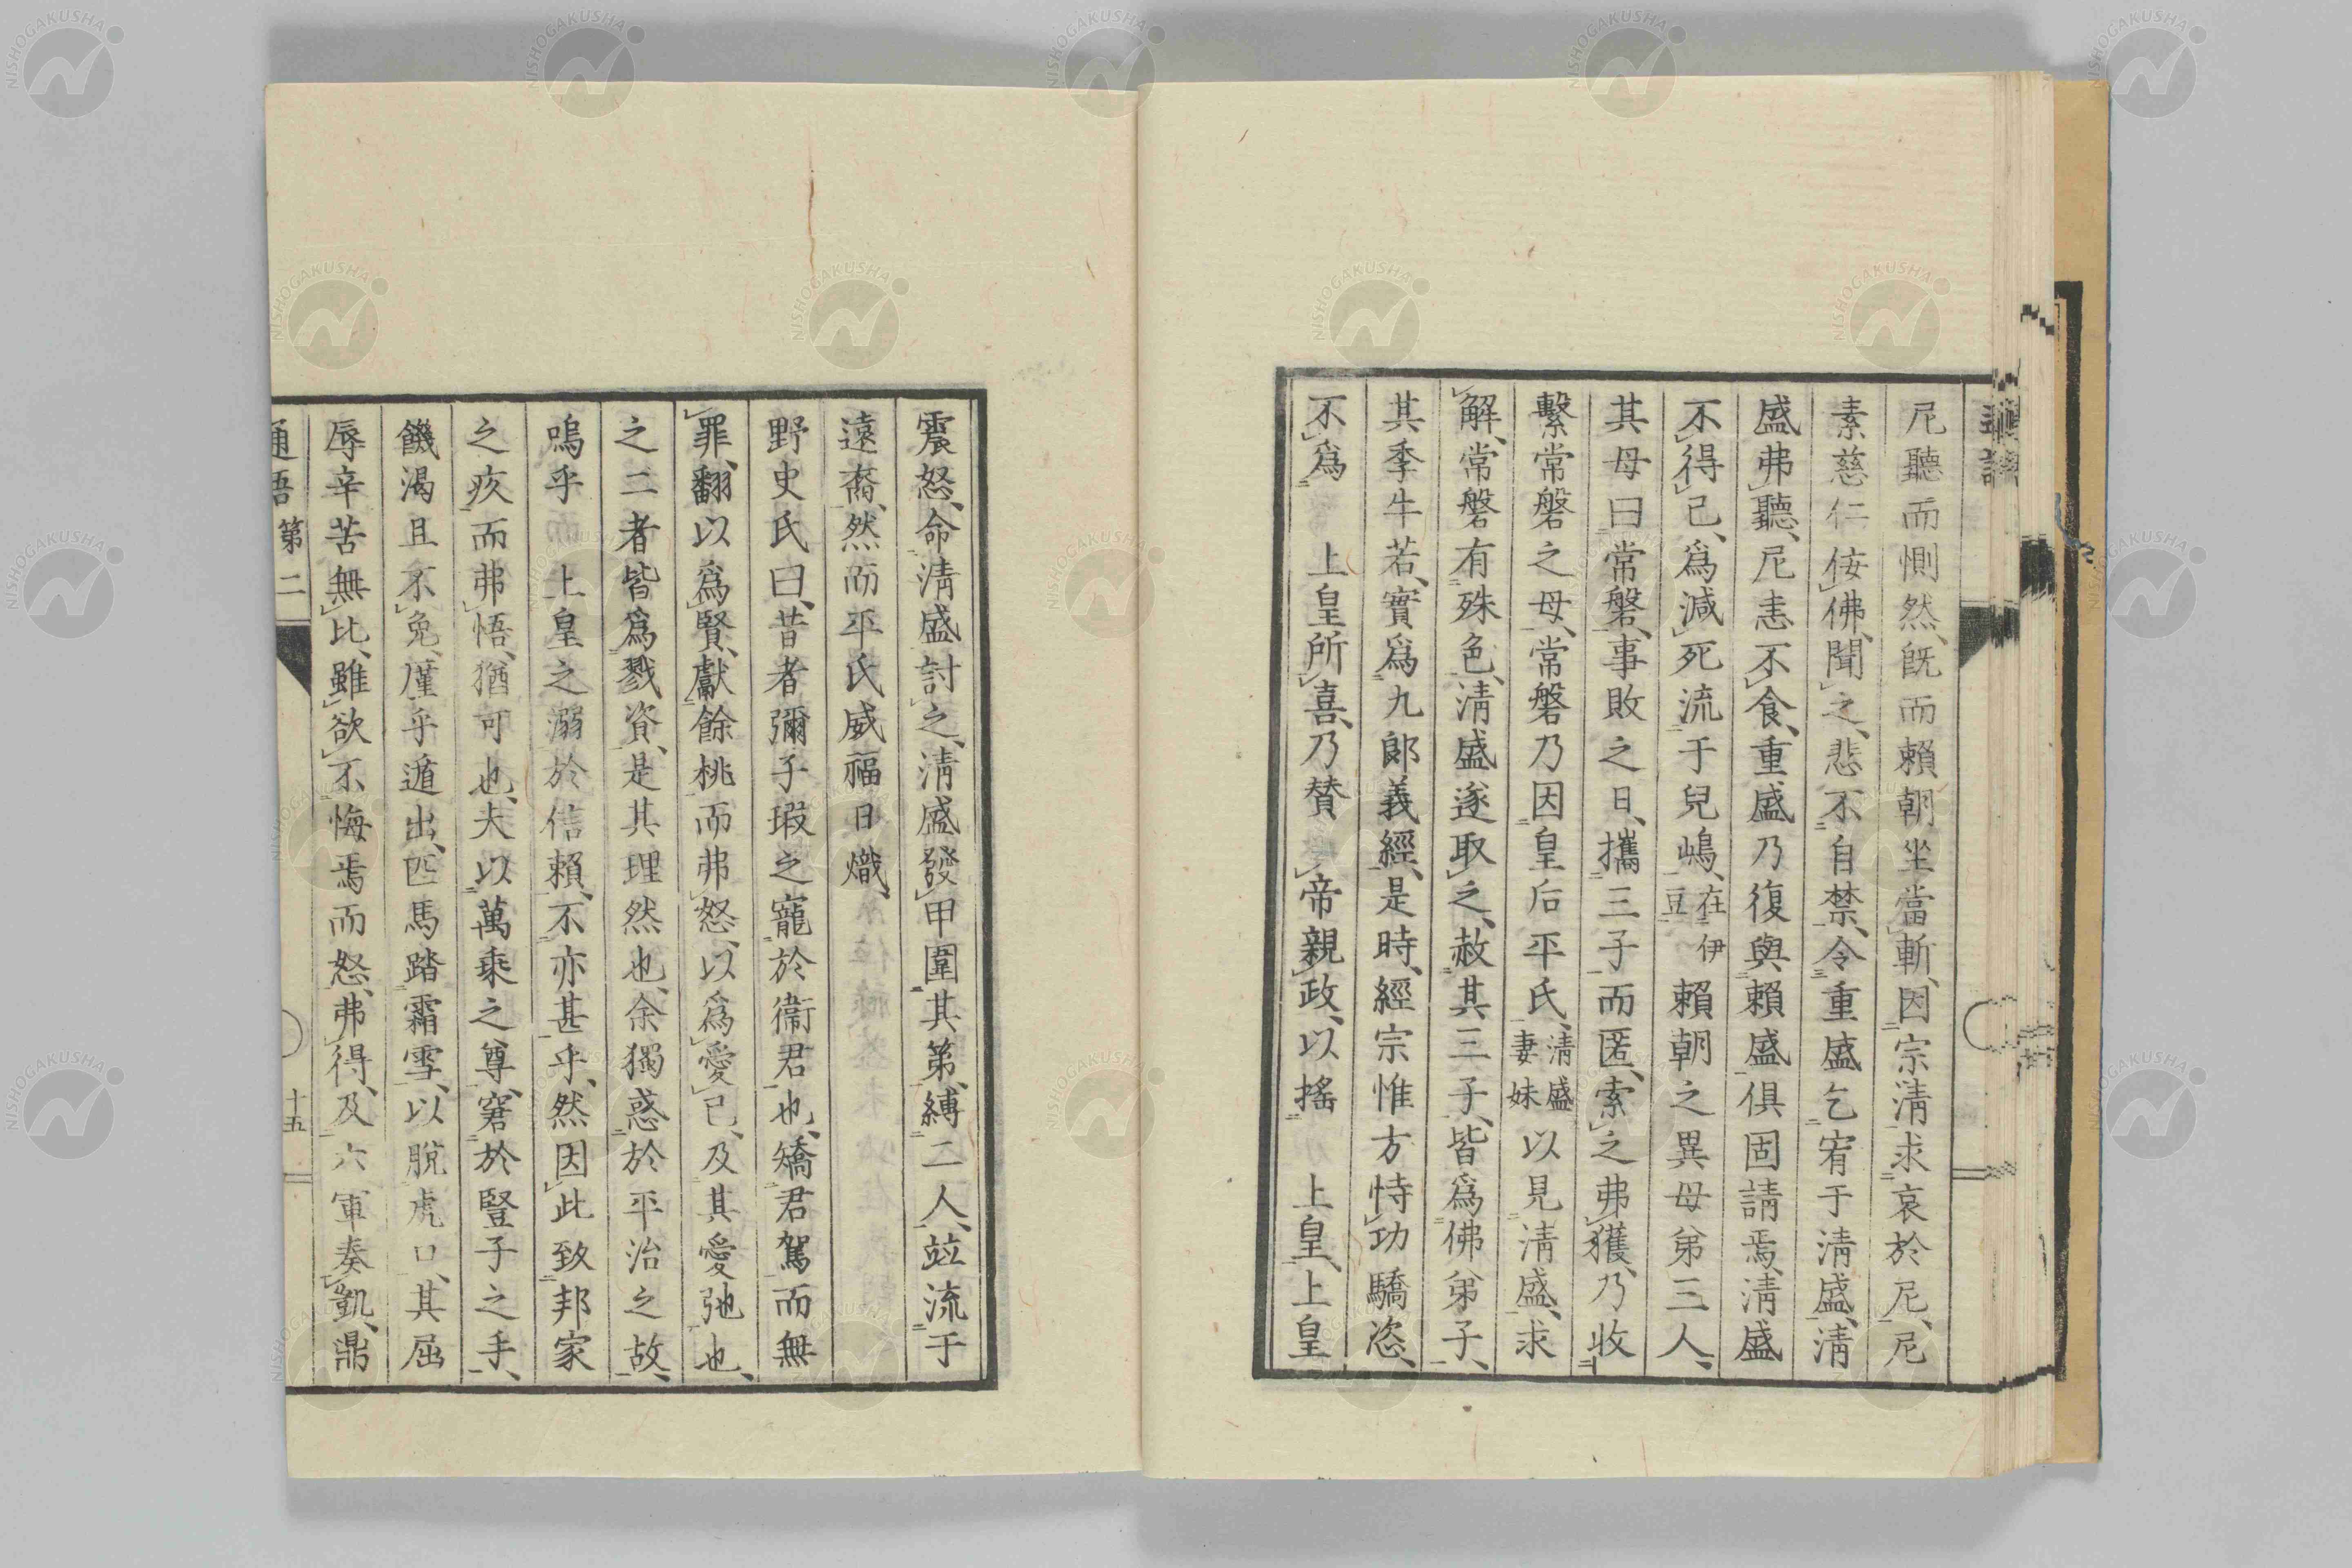 尼聽而惻然、既而賴朝坐當斬、因宗清求哀於尼、尼
素慈仁佞佛、聞之、悲不自禁、令重盛乞宥于清盛、清
盛弗聽、尼恚不食、重盛乃復與賴盛俱固請焉、清盛
不得已、爲減死流于兒嶋、在伊豆賴朝之異母弟三人、
其母曰常磐、事敗之日、攜三子而匿、索之弗獲、乃收
繫常磐之母、常磐乃因皇后平氏、清盛妻妹以見清盛、求
解、常磐有殊色、清盛遂取之、赦其三子、皆爲佛弟子、
其季牛若、實爲九郎義經、是時、經宗惟方恃功驕恣、
不爲 上皇所喜、乃贊 帝親政、以搖 上皇、上皇
震怒、命清盛討之、清盛發甲圍其第、縛二人、竝流于
遠裔、然而平氏威福日熾、
野史氏曰、昔者彌子瑕之寵於衞君也、矯君駕而無
罪、翻以爲賢、獻餘桃而弗怒、以爲愛己、及其愛弛也、
之二者皆爲戮資、是其理然也、余獨惑於平治之故、
嗚乎 上皇之溺於信賴、不亦甚乎、然因此致邦家
之疚而弗悟、猶可也、夫以萬乘之尊、窘於豎子之手、
饑渴且不免、僅乎遁出、匹馬踏霜雪、以脫虎口、其屈
辱辛苦無比、雖欲不悔焉而怒、弗得、及六軍奏凱、鼎
通語 第二 十五